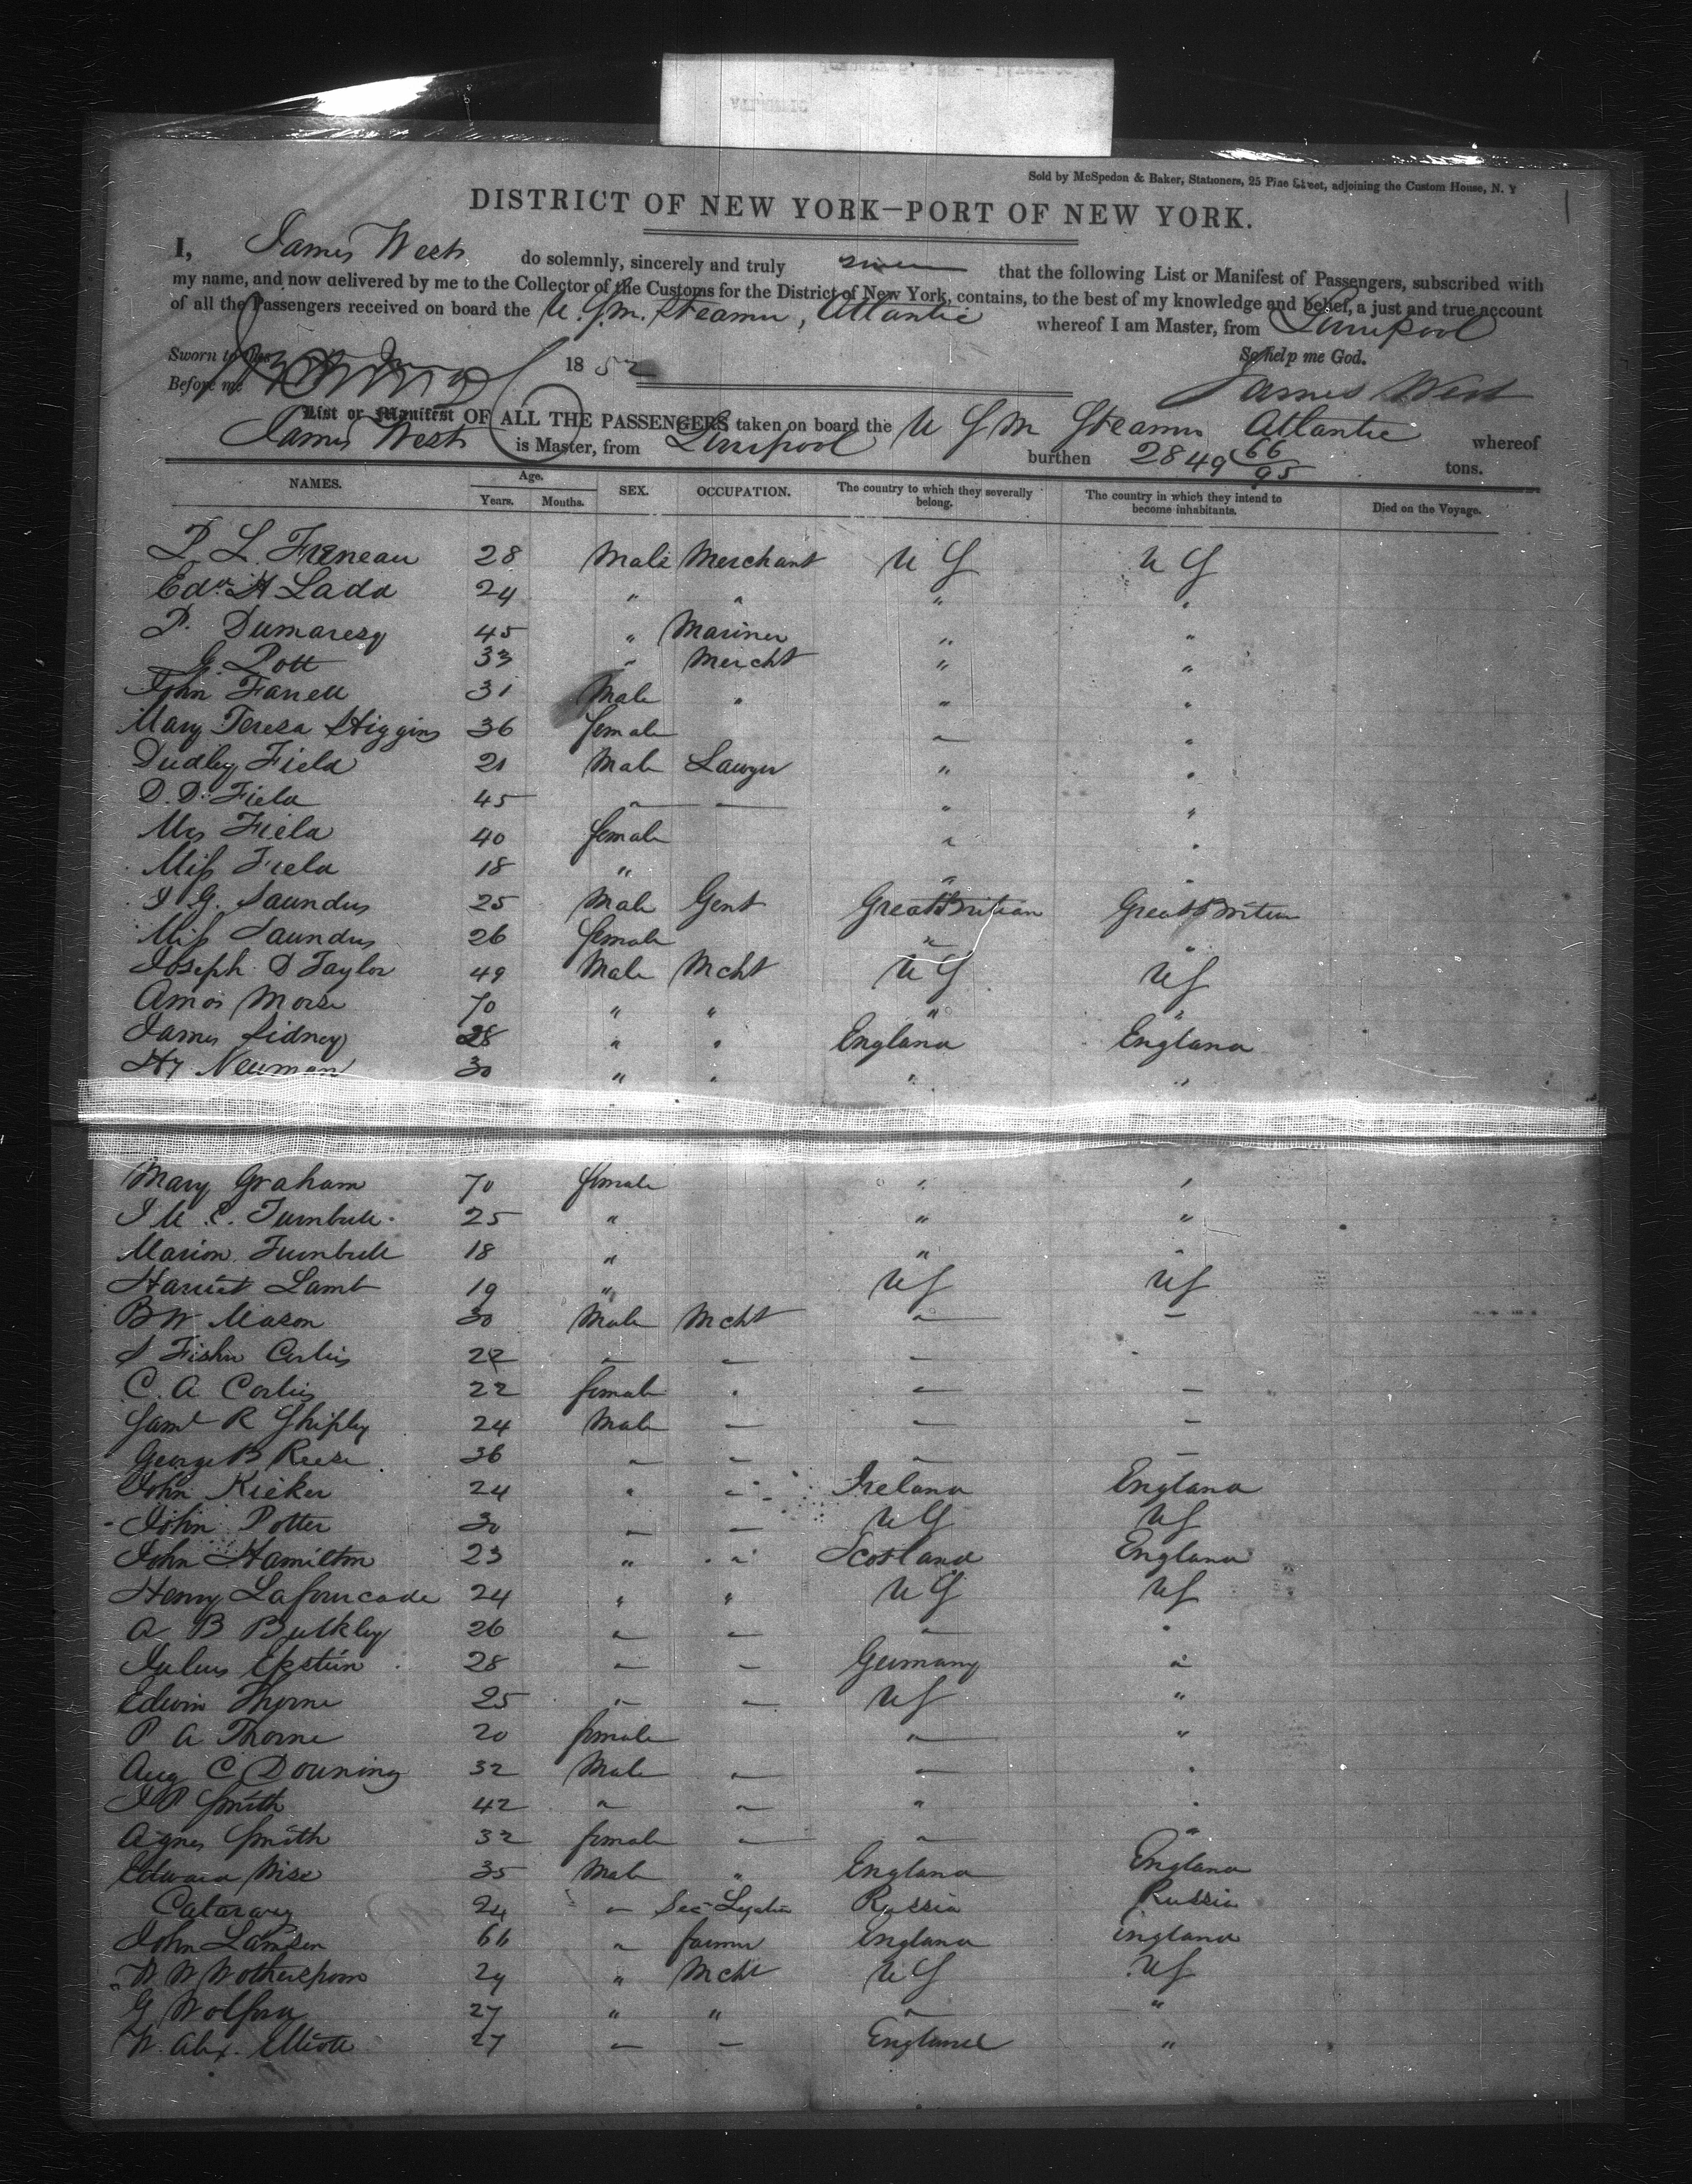 Sold by McSpedon & Baker, Stationers, 25 Pine Street, adjoining the Custom House, N. Y
DISTRICT OF NEW YORK—PORT OF NEW YORK.
I, James West do solemnly, sincerely and truly swear that the following List or Manifest of Passengers, subscribed with
my name, and now delivered by me to the Collector of the Customs for the District of New York, contains, to the best of my knowledge and belief, a just and true account
of all the Passengers received on board the U.S.M. Steamer, Atlantic whereof I am Master, from Liverpool
Sworn to this 1852 So help me God.
Before me James West
List or Manifest OF ALL THE PASSENGERS taken on board the U S M Steamer Atlantic whereof
James West is Master, from Liverpool burthen 2849 66/95 tons.
NAMES. Age. Years. Months. SEX. OCCUPATION. The country to which they severally belong. The country in which they intend to become inhabitants. Died on the Voyage.
P. L. Freneau 28 Male Merchant U S U S
Edw. H Ladd 24 " " " "
P. Dumaresq 45 " Mariner " "
G. Pott 33 " Mercht " "
John Farrell 31 Male " " "
Mary Teresa Higgins 36 female " "
Dudley Field 21 Male Lawyer " "
D. D. Field 45 " — " "
Mrs Field 40 female " "
Miss Field 18 " " "
J G. Saunders 25 Male Gent Great Britian Great Britian
Miss Saunders 26 female " "
Joseph D Taylor 49 Male Mcht U S U S
Amos Morse 70 " " " "
James Sidney 28 " " England England
Hy Newman 30 " " " "
Mary Graham 70 female " "
Turnbull 25 " " "
Marion Turnbull 18 " " "
Harriet Lamb 19 " U S U S
B W Mason 30 Male Mcht " —
S Fisher Corlies 22 — — — "
C. A Corlies 22 female " — —
Saml R Shipley 24 Male — — —
George B Reese 36 — — — —
John Kieker 24 " " Ireland England
John Potter 30 — — U S U S
John Hamilton 23 " " Scotland England
Henry Lafourcade 24 " " U S U S
A B Bulkley 26 — — — "
Julius Epstein 28 — — Germany "
Edwin Thorne 25 " — U S "
P A Thorne 20 female — "
Aug C Downing 32 Male — — "
J P Smith 42 " — " "
Agnes Smith 32 female — — "
Edward Wise 35 Male " England England
24 — Sec Legation Russia Russia
John Lamsen 66 " farmer England England
W W Wotherspoon 29 " Mcht U S U S
G Wolfsen 27 " " " "
W. Alex. Elliott 27 — — England "